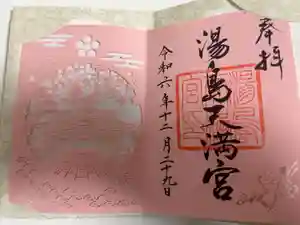 奉拝
湯島天満宮
令和六年十二月二十九日